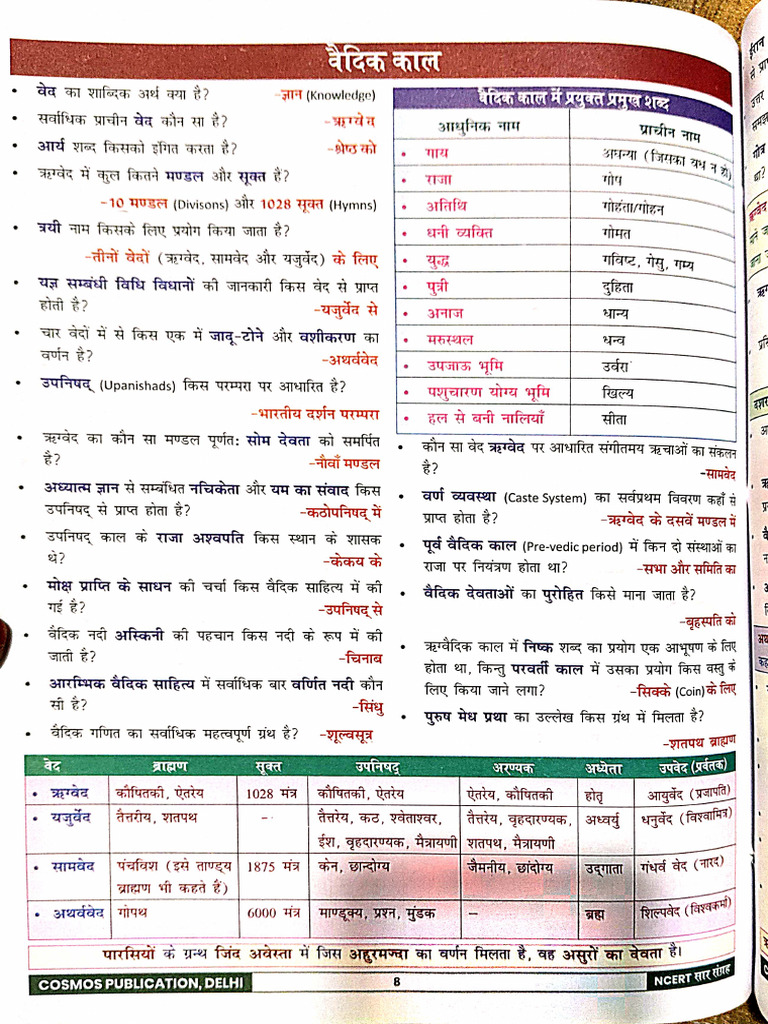 वैदिक काल
• वेद का शाब्दिक अर्थ क्या है? -ज्ञान (Knowledge)
• सर्वाधिक प्राचीन वेद कौन सा है? -ऋग्वेद
• आर्य शब्द किसको इंगित करता है? -श्रेष्ठ को
• ऋग्वेद में कुल कितने मण्डल और सूक्त हैं?
-10 मण्डल (Divisons) और 1028 सूक्त (Hymns)
• त्रयी नाम किसके लिए प्रयोग किया जाता है?
-तीनों वेदों (ऋग्वेद, सामवेद और यजुर्वेद) के लिए
• यज्ञ सम्बंधी विधि विधानों की जानकारी किस वेद से प्राप्त
होती है? -यजुर्वेद से
• चार वेदों में से किस एक में जादू-टोने और वशीकरण का
वर्णन है? -अथर्ववेद
• उपनिषद् (Upanishads) किस परम्परा पर आधारित है?
-भारतीय दर्शन परम्परा
• ऋग्वेद का कौन सा मण्डल पूर्णत: सोम देवता को समर्पित
है? -नौवाँ मण्डल
• अध्यात्म ज्ञान से सम्बंधित नचिकेता और यम का संवाद किस
उपनिषद् से प्राप्त होता है? -कठोपनिषद् में
• उपनिषद् काल के राजा अश्वपति किस स्थान के शासक
थे? -केकय के
• मोक्ष प्राप्ति के साधन की चर्चा किस वैदिक साहित्य में की
गई है? -उपनिषद् से
• वैदिक नदी अस्किनी की पहचान किस नदी के रूप में की
जाती है? -चिनाब
• आरम्भिक वैदिक साहित्य में सर्वाधिक बार वर्णित नदी कौन
सी है? -सिंधु
• वैदिक गणित का सर्वाधिक महत्वपूर्ण ग्रंथ है? -शूल्वसूत्र
वैदिक काल में प्रयुक्त प्रमुख शब्द
आधुनिक नाम प्राचीन नाम
• गाय अघन्या (जिसका वध न हो)
• राजा गोप
• अतिथि गोहंता/गोहन
• धनी व्यक्ति गोमत
• युद्ध गविष्ट, गेसु, गम्य
• पुत्री दुहिता
• अनाज धान्य
• मरुस्थल धन्व
• उपजाऊ भूमि उर्वरा
• पशुचारण योग्य भूमि खिल्य
• हल से बनी नालियाँ सीता
• कौन सा वेद ऋग्वेद पर आधारित संगीतमय ऋचाओं का संकलन
है? -सामवेद
• वर्ण व्यवस्था (Caste System) का सर्वप्रथम विवरण कहाँ से
प्राप्त होता है? -ऋग्वेद के दसवें मण्डल में
• पूर्व वैदिक काल (Pre-vedic period) में किन दो संस्थाओं का
राजा पर नियंत्रण होता था? -सभा और समिति का
• वैदिक देवताओं का पुरोहित किसे माना जाता है?
-बृहस्पति को
• ऋग्वैदिक काल में निष्क शब्द का प्रयोग एक आभूषण के लिए
होता था, किन्तु परवर्ती काल में उसका प्रयोग किस वस्तु के
लिए किया जाने लगा? -सिक्के (Coin) के लिए
• पुरुष मेध प्रथा का उल्लेख किस ग्रंथ में मिलता है?
-शतपथ ब्राह्मण
वेद ब्राह्मण सूक्त उपनिषद् अरण्यक अध्येता उपवेद (प्रर्वतक)
• ऋग्वेद कौषितकी, ऐतरेय 1028 मंत्र कौषितकी, ऐतरेय ऐतरेय, कौषितकी होतृ आयुर्वेद (प्रजापति)
• यजुर्वेद तैत्तरीय, शतपथ – तैत्तरेय, कठ, श्वेताश्वर, तैत्तरेय, वृहदारण्यक, अध्वर्यु धनुर्वेद (विश्वामित्र)
ईश, वृहदारण्यक, मैत्रायणी शतपथ, मैत्रायणी
• सामवेद पंचविश (इसे ताण्ड्य 1875 मंत्र केन, छान्दोग्य जैमनीय, छांदोग्य उद्गाता गंधर्व वेद (नारद)
ब्राह्मण भी कहते हैं)
• अथर्ववेद गोपथ 6000 मंत्र माण्डूक्य, प्रश्न, मुंडक – ब्रह्म शिल्पवेद (विश्वकर्मा)
पारसियों के ग्रन्थ जिंद अवेस्ता में जिस अहुरमज्दा का वर्णन मिलता है, वह असुरों का देवता है।
COSMOS PUBLICATION, DELHI 8 NCERT सार संग्रह